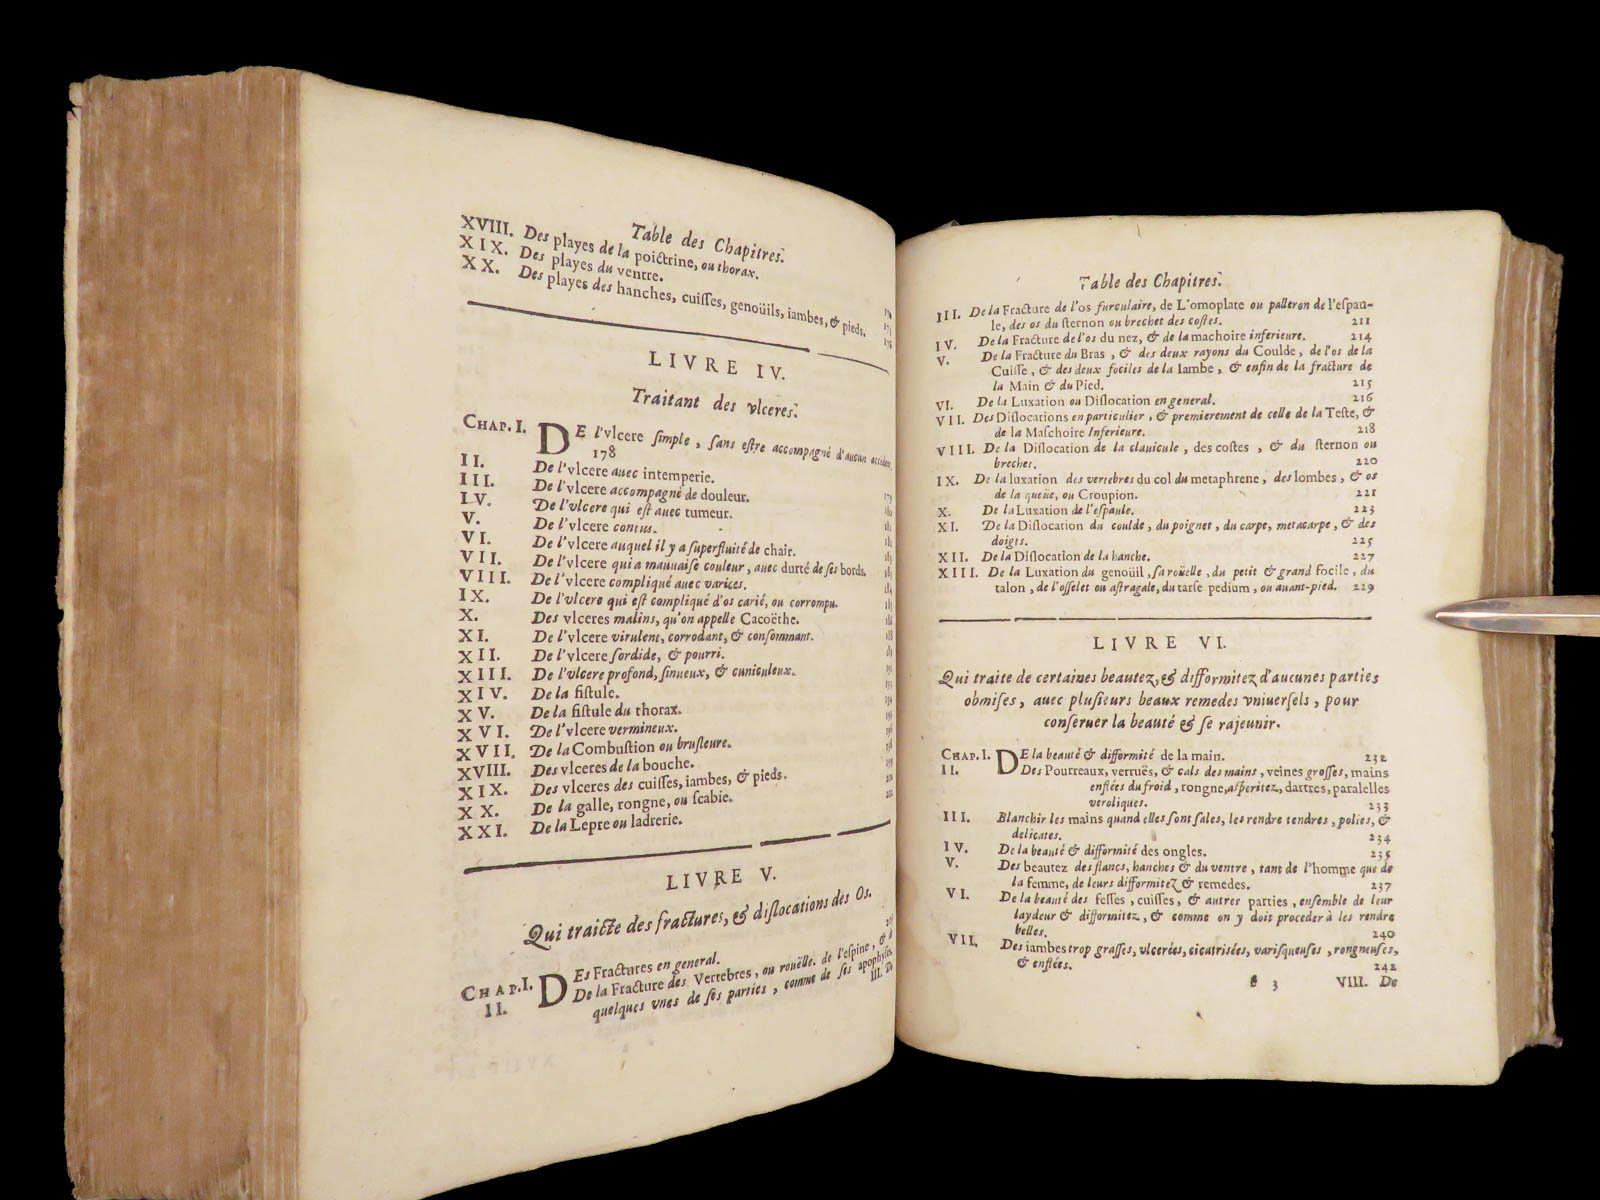 Table des Chapitres.
XVIII. Des playes de la poictrine, ou thorax. 170
XIX. Des playes du ventre. 171
XX. Des playes des hanches, cuiſſes, genoüils, iambes, & pieds. 176
LIVRE IV.
Traitant des vlceres.
CHAP. I. DE l'vlcere ſimple, ſans eſtre accompagné d'aucun accident,
178
II. De l'vlcere auec intemperie.
III. De l'vlcere accompagné de douleur. 179
IV. De l'vlcere qui eſt auec tumeur. 180
V. De l'vlcere contus. 181
VI. De l'vlcere auquel il y a ſuperfluité de chair.
VII. De l'vlcere qui a mauuaiſe couleur, auec durté de ſes bords.
VIII. De l'vlcere compliqué auec varices.
IX. De l'vlcere qui eſt compliqué d'os carié, ou corrompu.
X. Des vlceres malins, qu'on appelle Cacoëthe.
XI. De l'vlcere virulent, corrodant, & conſommant.
XII. De l'vlcere ſordide, & pourri.
XIII. De l'vlcere profond, ſinueux, & cuniculeux.
XIV. De la fiſtule.
XV. De la fiſtule du thorax.
XVI. De l'vlcere vermineux.
XVII. De la Combuſtion ou bruſleure.
XVIII. Des vlceres de la bouche.
XIX. Des vlceres des cuiſſes, iambes, & pieds.
XX. De la galle, rongne, ou ſcabie.
XXI. De la Lepre ou ladrerie.
LIVRE V.
Qui traicte des fractures, & diſlocations des Os.
CHAP. I. DEs Fractures en general.
II. De la Fracture des Vertebres, ou rouëlle de l'eſpine, & à
quelques vnes de ſes parties, comme de ſes apophyſes.
III. De
Table des Chapitres.
III. De la Fracture de l'os furculaire, de L'omoplate ou palleron de l'eſpau-
le, des os du ſternon ou brechet des coſtes. 211
IV. De la Fracture de l'os du nez, & de la machoire inferieure. 214
V. De la Fracture du Bras, & des deux rayons du Coulde, de l'os de la
Cuiſſe, & des deux fociles de la Iambe, & enfin de la fracture de
la Main & du Pied. 215
VI. De la Luxation ou Diſlocation en general. 216
VII. Des Diſlocations en particulier, & premierement de celle de la Teſte, &
de la Maſchoire Inferieure. 218
VIII. De la Diſlocation de la clauicule, des coſtes, & du ſternon ou
brechet. 220
IX. De la luxation des vertebres du col du metaphrene, des lombes, & os
de la queüe, ou Croupion. 221
X. De la Luxation de l'eſpaule. 223
XI. De la Diſlocation du coulde, du poignet, du carpe, metacarpe, & des
doigts. 225
XII. De la Diſlocation de la hanche. 227
XIII. De la Luxation du genoüil, ſa roüelle, du petit & grand focile, du
talon, de l'oſſelet ou aſtragale, du tarſe pedium, ou auant-pied. 229
LIVRE VI.
Qui traite de certaines beautez, & difformitez d'aucunes parties
obmiſes, auec pluſieurs beaux remedes vniuerſels, pour
conſeruer la beauté & ſe rajeunir.
CHAP. I. DE la beauté & difformité de la main. 232
II. Des Pourreaux, verruës, & cals des mains, veines groſſes, mains
enflées du froid, rongne, aſperitez, dartres, paralelles
veroliques. 233
III. Blanchir les mains quand elles ſont ſales, les rendre tendres, polies, &
delicates. 234
IV. De la beauté & difformité des ongles. 235
V. Des beautez des flancs, hanches & du ventre, tant de l'homme que de
la femme, de leurs difformitez & remedes. 237
VI. De la beauté des feſſes, cuiſſes, & autres parties, enſemble de leur
laydeur & difformitez, & comme on y doit proceder à les rendre
belles. 240
VII. Des iambes trop graſſes, vlcerées, cicatriſées, variſqueuſes, rongneuſes,
& enflées. 242
é 3 VIII. De